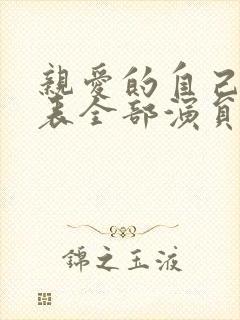 親愛的自己
表全部演員
錦之玉液